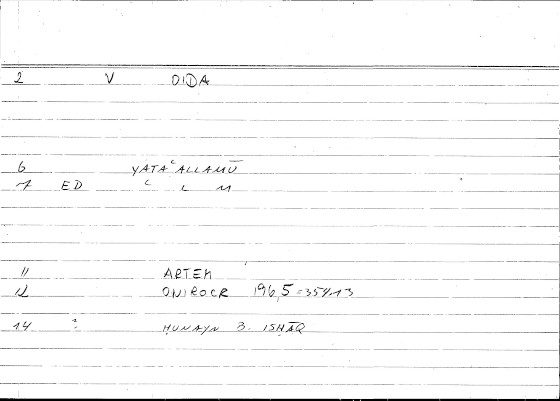 2 V OIDA
6 YATAʿALLAMŪ
7 ED ʿ L M
11 ARTEM
12 ONIROCR 196,5 = 354.13
14 : ḤUNAYN B. ISḤĀQ